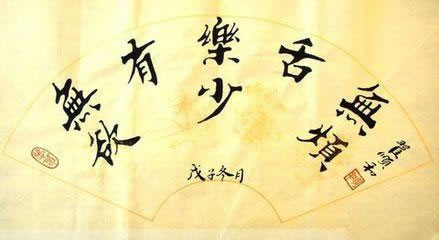 無欲有樂少舌無煩
順和
戊子冬月